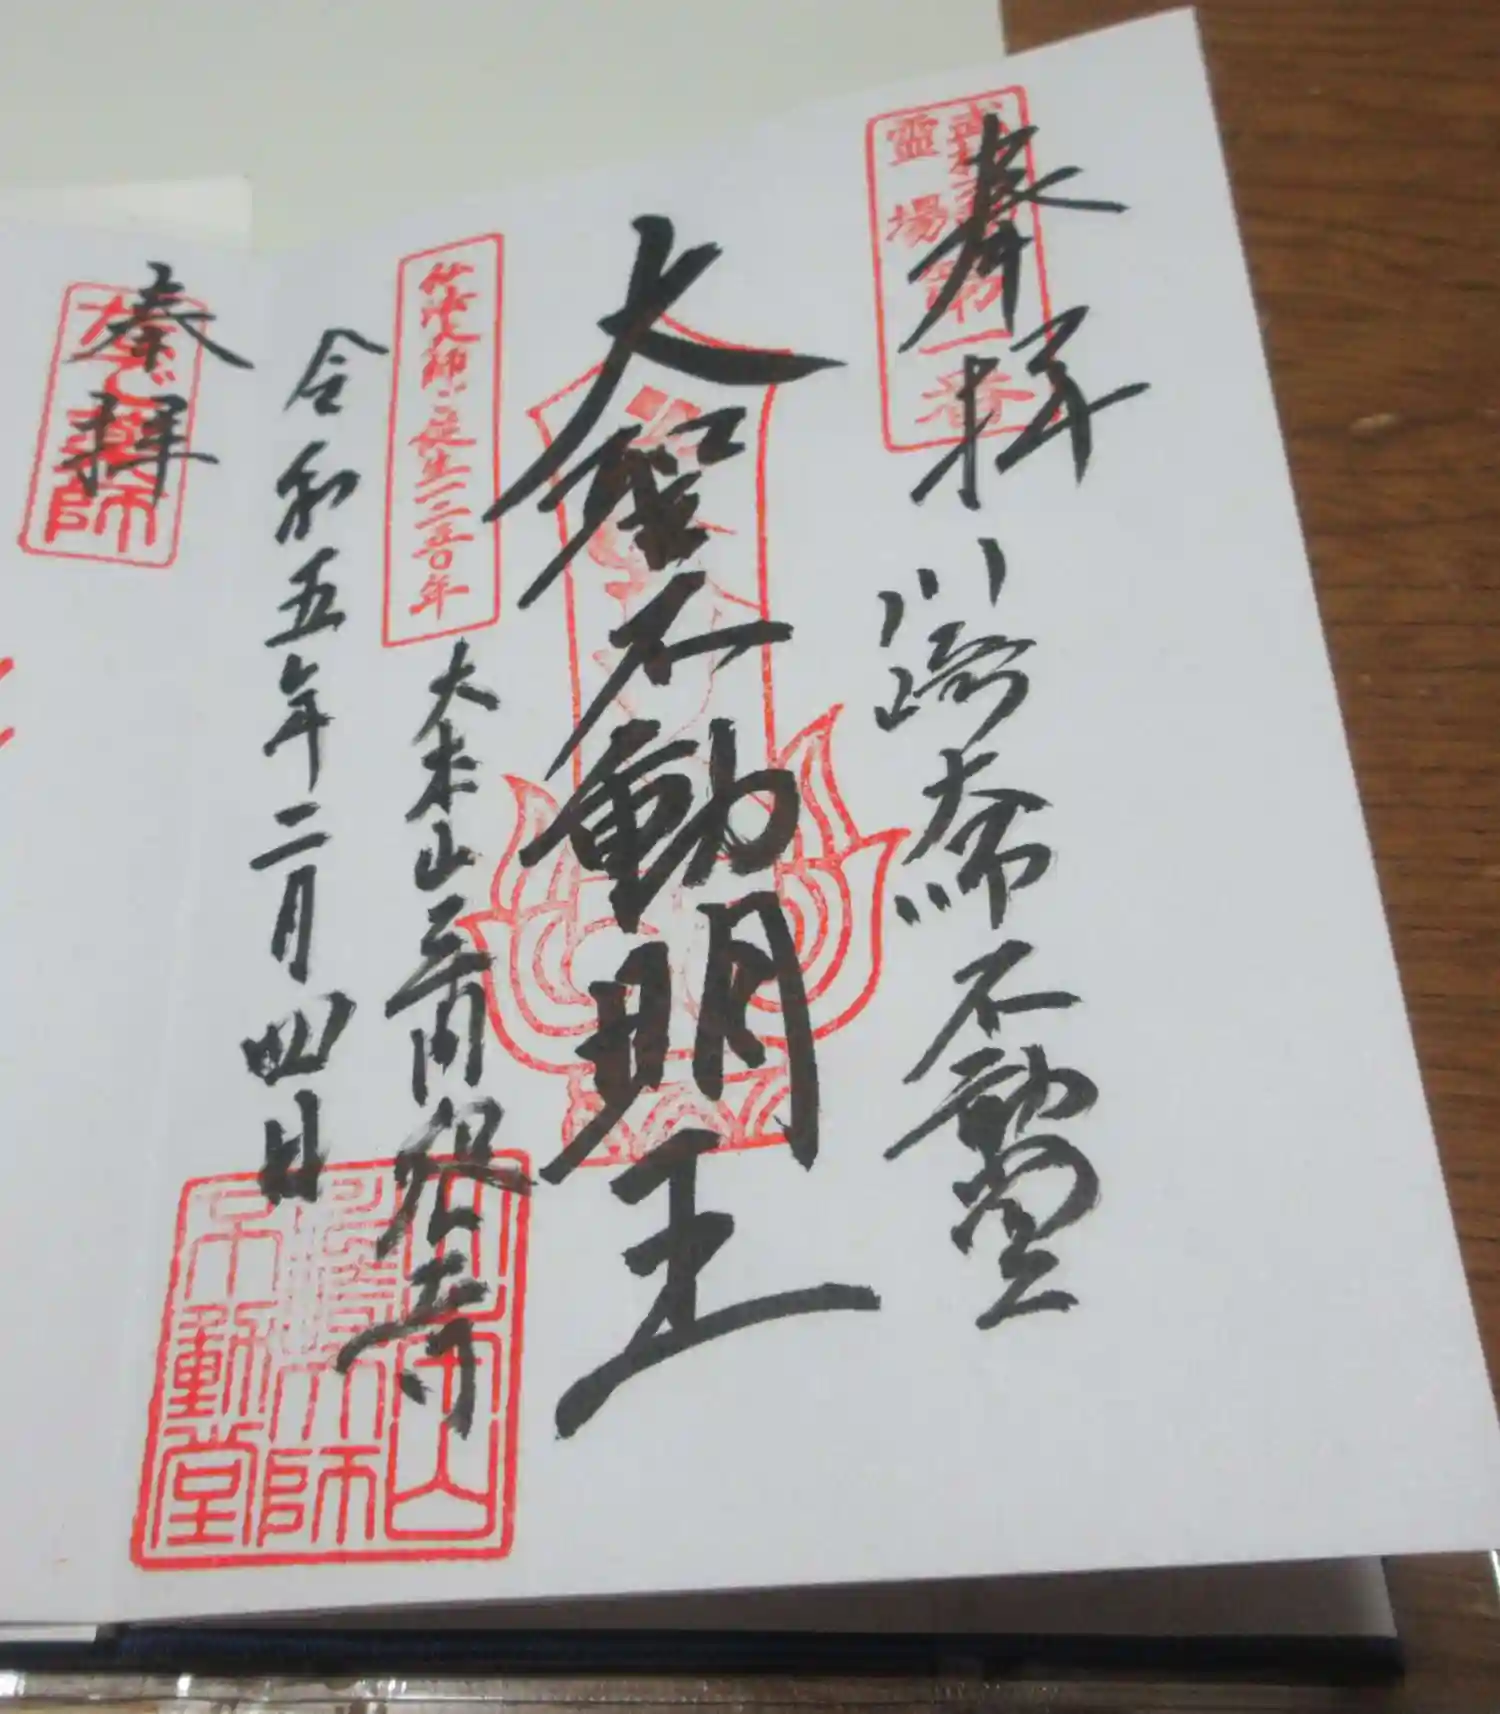 奉拝
川崎大師不動堂
武相不動尊
霊場第一番
大聖不動明王
弘法大師ご誕生一二五〇年
大本山 川崎大師 平間寺
令和五年二月四日
山
師
不動堂
奉拝
なで薬師